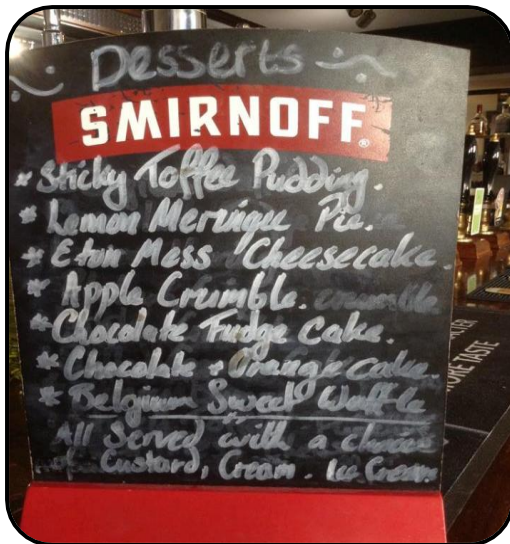 Desserts
SMIRNOFF®
* Sticky Toffee Pudding.
* Lemon Meringue Pie.
* Eton Mess Cheesecake.
* Apple Crumble. crumble
* Chocolate Fudge Cake.
* Chocolate + Orange cake.
* Belgium Sweet Waffle
All Served with a choice
of Custard, Cream. Ice Cream.
TASTE